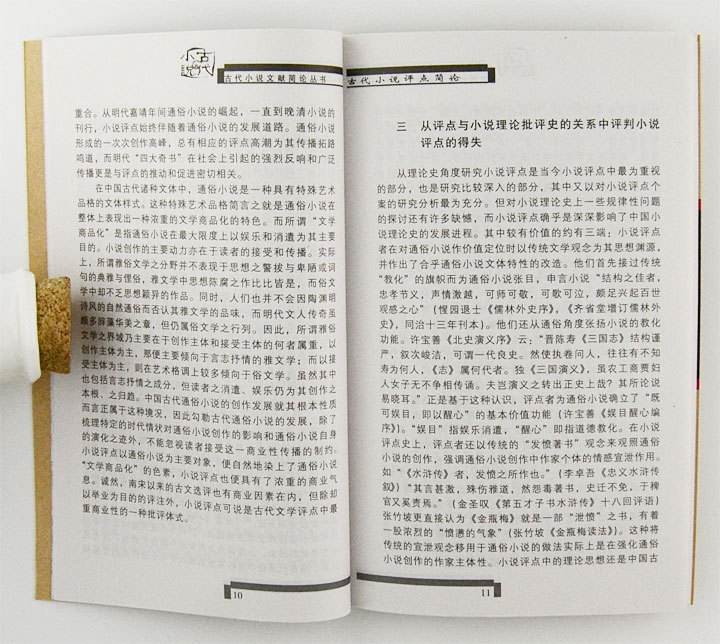 古代小说
古代小说文献简论丛书
重合。从明代嘉靖年间通俗小说的崛起，一直到晚清小说的
刊行，小说评点始终伴随着通俗小说的发展道路。通俗小说
形成的一次次创作高峰，总有相应的评点高潮为其传播拓路
鸣道，而明代“四大奇书”在社会上引起的强烈反响和广泛
传播更是与评点的推动和促进密切相关。
在中国古代诸种文体中，通俗小说是一种具有特殊艺术
品格的文体样式。这种特殊艺术品格简言之就是通俗小说在
整体上表现出一种浓重的文学商品化的特色。而所谓“文学
商品化”是指通俗小说在最大限度上以娱乐和消遣为其主要
目的。小说创作的主要动力亦在于读者的接受和传播。实际
上，所谓雅俗文学之分野并不表现于思想之警拔与卑陋或词
句的典雅与俚俗，雅文学中思想陈腐之作比比皆是，而俗文
学中却不乏思想颖异的作品。同时，人们也并不会因陶渊明
诗风的自然通俗而否认其雅文学的品味，而明代文人传奇虽
颇多辞藻华美之章，但仍属俗文学之行列。因此，所谓雅俗
文学之界域乃主要在于创作主体和接受主体的何者属重，以
创作主体为主，那便主要倾向于言志抒情的雅文学；而以接
受主体为主，则在艺术格调上较多倾向于俗文学。虽然其中
也包括言志抒情之成分，但读者之消遣、娱乐仍为其创作之
本根、之归趋。中国古代通俗小说的创作发展就其根本性质
而言正属于这种境况，因此勾勒古代通俗小说的发展，除了
梳理特定的时代情状对通俗小说创作的影响和通俗小说自身
的演化之迹外，不能忽视读者接受这一商业性传播的制约。
小说评点以通俗小说为主要对象，便自然地染上了通俗小说
“文学商品化”的色素，小说评点也便具有了浓重的商业气
息。诚然，南宋以来的古文选评也有商业因素在内，但除却
以举业为目的的评注外，小说评点可说是古代文学评点中最
重商业性的一种批评体式。
10
古代小说评点简论
三　从评点与小说理论批评史的关系中评判小说
评点的得失
从理论史角度研究小说评点是当今小说评点中最为重视
的部分，也是研究比较深入的部分，其中又以对小说评点个
案的研究分析最为充分。但对小说理论史上一些规律性问题
的探讨还有许多缺憾，而小说评点确乎是深深影响了中国小
说理论史的发展进程。其中较有价值的约有三端：小说评点
者在对通俗小说作价值定位时以传统文学观念为其思想渊源，
并作出了合乎通俗小说文体特性的改造。他们首先接过传统
“教化”的旗帜而为通俗小说张目，申言小说“结构之佳者，
忠孝节义，声情激越，可师可敬，可歌可泣，颇足兴起百世
观感之心”（惺园退士《儒林外史序》，《齐省堂增订儒林外
史》，同治十三年刊本）。他们还从通俗角度张扬小说的教化
功能。许宝善《北史演义序》云：“晋陈寿《三国志》结构谨
严，叙次峻洁，可谓一代良史。然使执卷问人，往往有不知
寿为何人，《志》属何代者。独《三国演义》，虽农工商贾妇
人女子无不争相传诵。夫岂演义之转出正史上哉？其所论说
易晓耳。”正是基于这种认识，评点者为通俗小说确立了“既
可娱目，即以醒心”的基本价值功能（许宝善《娱目醒心编
序》）。“娱目”指娱乐消遣，“醒心”即指道德教化。在小说
评点史上，评点者还以传统的“发愤著书”观念来观照通俗
小说的创作，强调通俗小说创作中作家个体的情感宣泄作用。
如“《水浒传》者，发愤之所作也。”（李卓吾《忠义水浒传
叙》）“其言甚激，殊伤雅道，然怨毒著书，史迁不免，于稗
官又奚责焉。”（金圣叹《第五才子书水浒传》十八回评语）
张竹坡更直接认为《金瓶梅》就是一部“泄愤”之书，有着
一股浓烈的“愤懑的气象”（张竹坡《金瓶梅读法》）。这种将
传统的宣泄观念移用于通俗小说的做法实际上是在强化通俗
小说创作的作家主体性。小说评点中的理论思想还是中国古
11